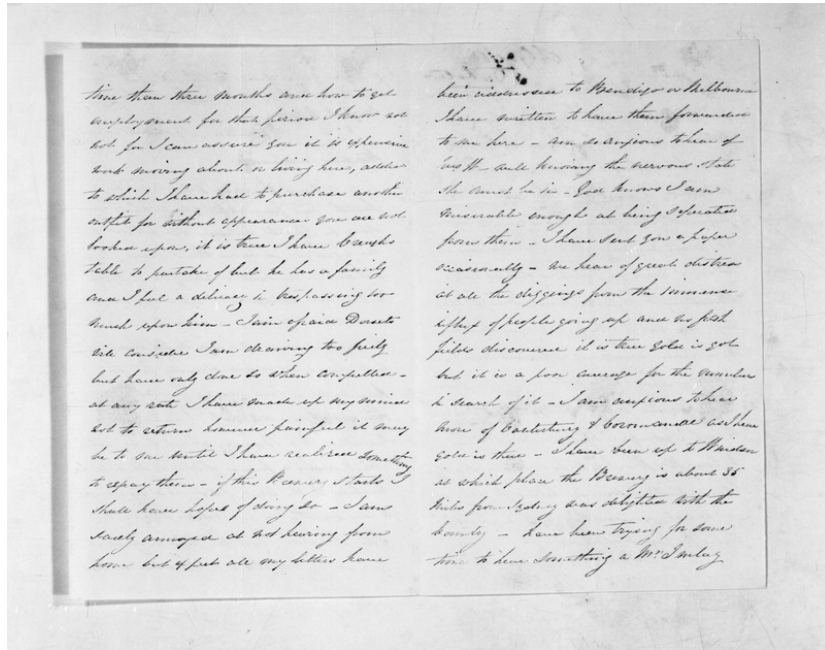 time than three months and how to get
employment for that period I know not
not for I can assure you it is expensive
work moving about or living here, added
to which I have had to purchase another
outfit for without appearances you are not
looked upon, it is true I have
table to partake of but he has a family
and I feel a delicacy in trespassing too
much upon him - I am afraid Dorsets
will consider I am drawing too freely
but have only done so when compelled -
at any rate I have made up my mind
not to return however painful it may
be to me until I have realized something
to repay them - if this Brewery starts I
shall have hopes of doing so - I am
sadly annoyed at not hearing from
home but expect all my letters have
been addressed to Bendigo or Melbourne
I have written to have them forwarded
to me here - am so anxious to hear of
well knowing the nervous state
she must be in - God knows I am
miserable enough at being seperated
from them - I have sent you a paper
occasionally - we hear of great distress
at all the diggings from the immense
influx of people going up and no fresh
fields discovered it is true gold is got
but it is a poor average for the numbers
in search of it - I am anxious to hear
more of & Coromandel as I hear
gold is there - I have been up to Windsor
at which place the Brewery is about 35
miles from Sydney was delighted with the
country - have been trying for some
time to hear something a Mr. Imlay